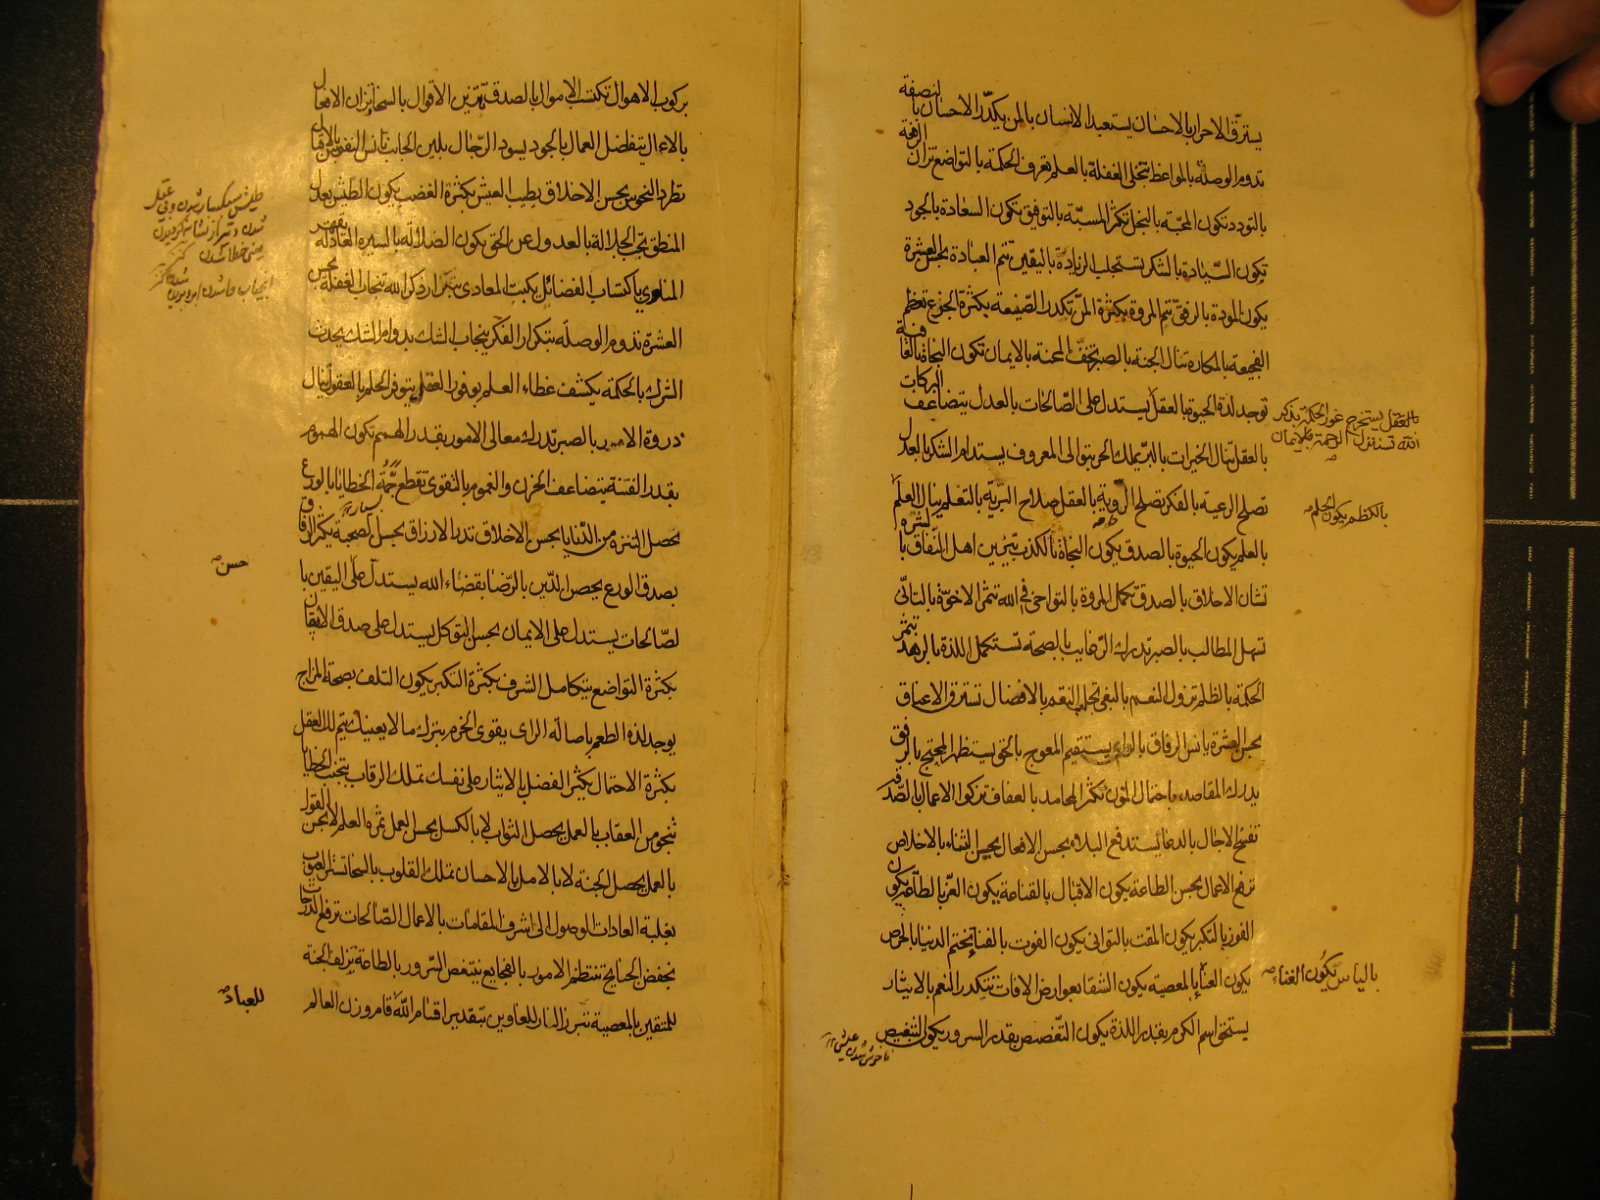 يسترقّ الاحرار بالاحسان يستعبد الانسان بالمن يكدّر الاحسان بالنصفة
تدوم الوصلة بالمواعظ تنجلى الغفلة بالعلم تعرف الحكمة بالتواضع تزان الرفعة
بالتودد تكون المحبّة بالبخل تكثر المسبّة بالتوفيق تكون السعادة بالجود
تكون السّيادة بالشكر تستجلب الزيادة باليقين تتم العبادة بحسن العشرة
يكون المودة بالرفق تتم المروة بكثرة المنّ تكدر الصّنيعة بكثرة الجزع تعظم
الفجيعة بالمكاره تنال الجنة بالصبر تخفّ المحنة بالايمان تكون النجاة بالعافية
توجد لذة الحيوة بالعقل يستدل على الصّالحات بالعدل يتضاعف البركات
بالعقل ينال الخيرات بالبرّ يملك الحر بتوالى المعروف يستدام الشكر بالعدل
تصلح الرعية بالفكر تصلح الروية بالعقل صلاح البريّة بالتعلم ينال العلم
بالعلم يكون الحيوة بالصدق يكون النجاة بالكذب يتزين اهل النّفاق بالشره
تشان الاخلاق بالصدق تكمل المروة بالتواخى فى الله تثمر الاخوّة بالتانّى
تسهل المطالب بالصبر تدرك الرّغايب بالصحة تستكمل اللذة بالزهد تثمر
الحكمة بالظلم تزول النعم بالبغى تجلب النقم بالافضال تسترق الاعناق
بحسن العشرة يانس الرفاق بالعلم يستقيم المعوج بالحق يستظهر المحتج بالرفق
يدرك المقاصد باحتمال المؤن تكثر المحامد بالعفاف تزكوا الاعمال بالصّدقة
تفسح الاجال بالدعا يستدفع البلاء بحسن الافعال يحسن الثناء بالاخلاص
ترفع الاعمال بحسن الطاعة يكون الاقبال بالقناعة يكون العزّ بالطاعة يكون
الفوز بالتكبر يكون المقت بالتوانى يكون الفوت بالفنا يختم الدنيا بالحرص
يكون العنا بالمعصية يكون الشقا بعوارض الافات تتكدر النعم بالايثار
يستحق اسم الكرم بقدر اللذة يكون التغصص بقدر السرور يكون التنغيص
بالعقل يستخرج غور الحكمة بذكر
الله تستنزل الرحمة بالايمان
بالكظم يكون الحلم
بالياس يكون الغناء
ناخوش شدن عيش
بركوب الاهوال تكتسب الاموال بالصدق تتزين الاقوال بالسخا يزان الافعال
بالاعمال يتفاضل العمال بالجود يسود الرّجال بلين الجانب تانس النفوس بالاقبال
تطرد النحوس بحسن الاخلاق يطيب العيش بكثرة الغضب يكون الطيش بعدل
المنطق تجب الجلالة بالعدول عن الحق يكون الضلالة بالسيرة العادلة يقهر
المناوى باكتساب الفضائل يكبت المعادى بتكرار ذكر الله تنجاب الغفلة بحسن
العشرة تدوم الوصلة بتكرار الفكر ينجاب الشك بدوام الشك يحدث
الشرك بالحكمة يكشف غطاء العلم بوفور العقل يتوفر الحلم بالعقول ينال
ذروة الامور بالصبر تدرك معالى الامور بقدر الهمم تكون الهموم
بقدر القنية يتضاعف الحزن والغموم بالتقوى تقطع حمّة الخطايا بالورع
يحصل التنزه من الدّنايا بحسن الاخلاق تدر الارزاق بحسن الصحبة يكثر الرفاق
بصدق الورع يحصن الدّين بالرّضا بقضاء الله يستدل على اليقين با
لصّالحات يستدل على الايمان بحسن التوكل يستدل على صدق الايقان
بكثرة التواضع يتكامل الشرف بكثرة التكبر يكون التلف بصحة المزاج
يوجد لذة الطعم باصالة الراى يقوى الحزم بترك ما لا يعنيك يتم لك العقل
بكثرة الاحتمال يكثر الفضل بالايثار على نفسك تملك الرقاب بتجنب الخطايا
تنجو من العقاب بالعمل يحصل الثواب لا بالكسل بحسن العمل ثمرة العلم لا بحسن القول
بالعمل يحصل الجنة لا بالامل بالاحسان تملك القلوب بالسخا تستر العيوب
بغلبة العادات الوصول الى اشرف المقامات بالاعمال الصّالحات ترفع الدرجات
بخفض الجناح تنتظم الامور بالفجايع يتنغص السّرور بالطاعة تزلف الجنة
للمتقين بالمعصية تبرز النار للغاوين بتقدير اقسام الله قام وزن العالم
حسن
للعباد